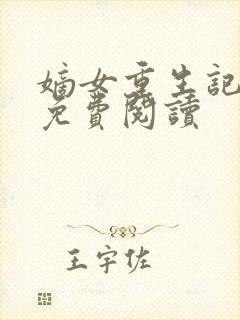 嫡女重生記
免費閱讀
王宇佐